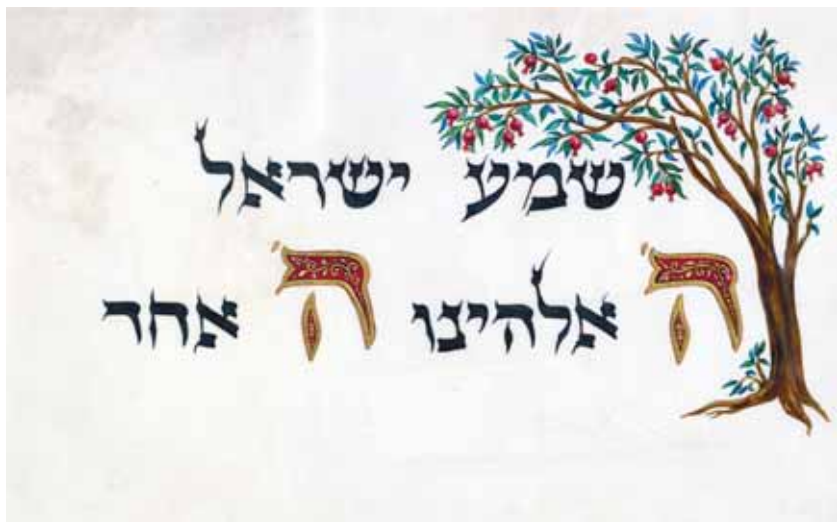 שמע ישראל
ה' אלהינו ה' אחד